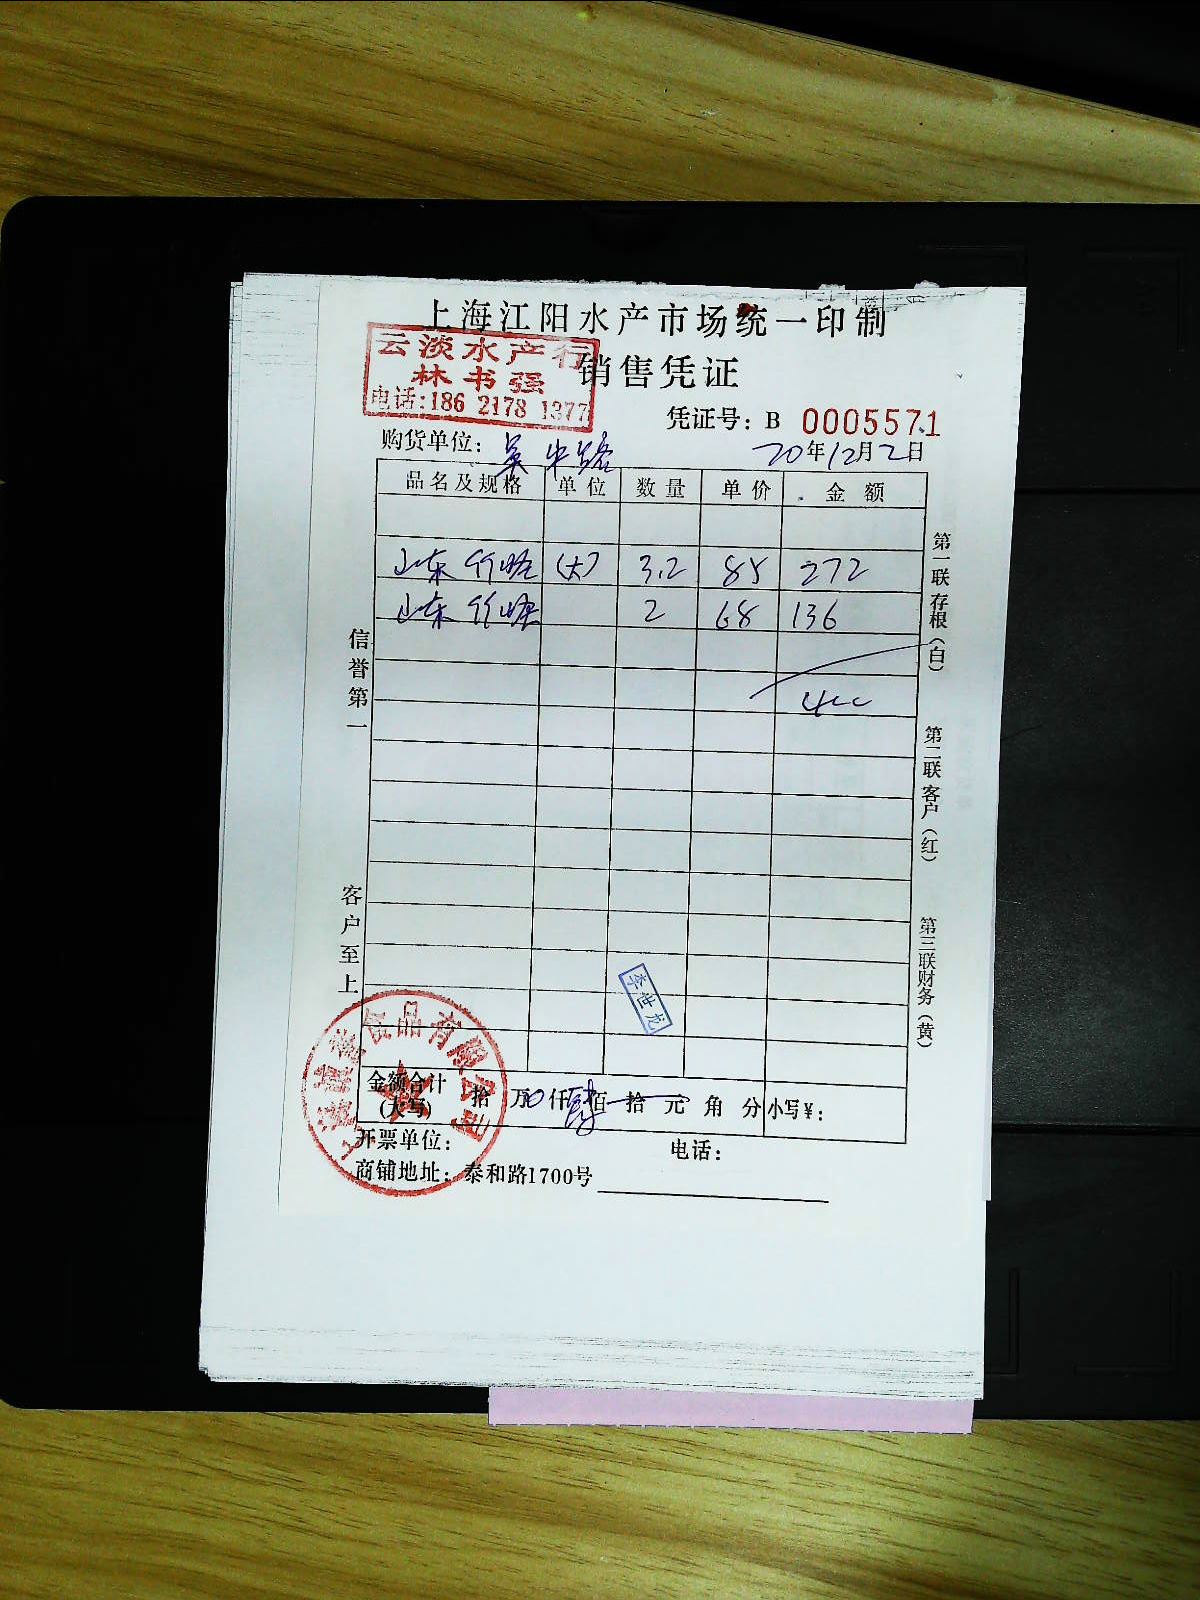 上海江阳水产市场统一印制
云淡水产行
林书强
电话:186 2178 1377
销售凭证
凭证号: B 0005571
购货单位: 吴中路
20年12月2日
品名及规格 单位 数量 单价 金额
山东竹蛏 (大) 3.2 85 272
山东竹蛏 2 68 136
400
信誉第一
客户至上
第一联存根(白)
第二联客户(红)
第三联财务(黄)
李世龙
食品有限公司
金额合计(大写) 拾 万 0 仟 肆 佰 拾 元 角 分 小写¥:
开票单位: 电话:
商铺地址: 泰和路1700号